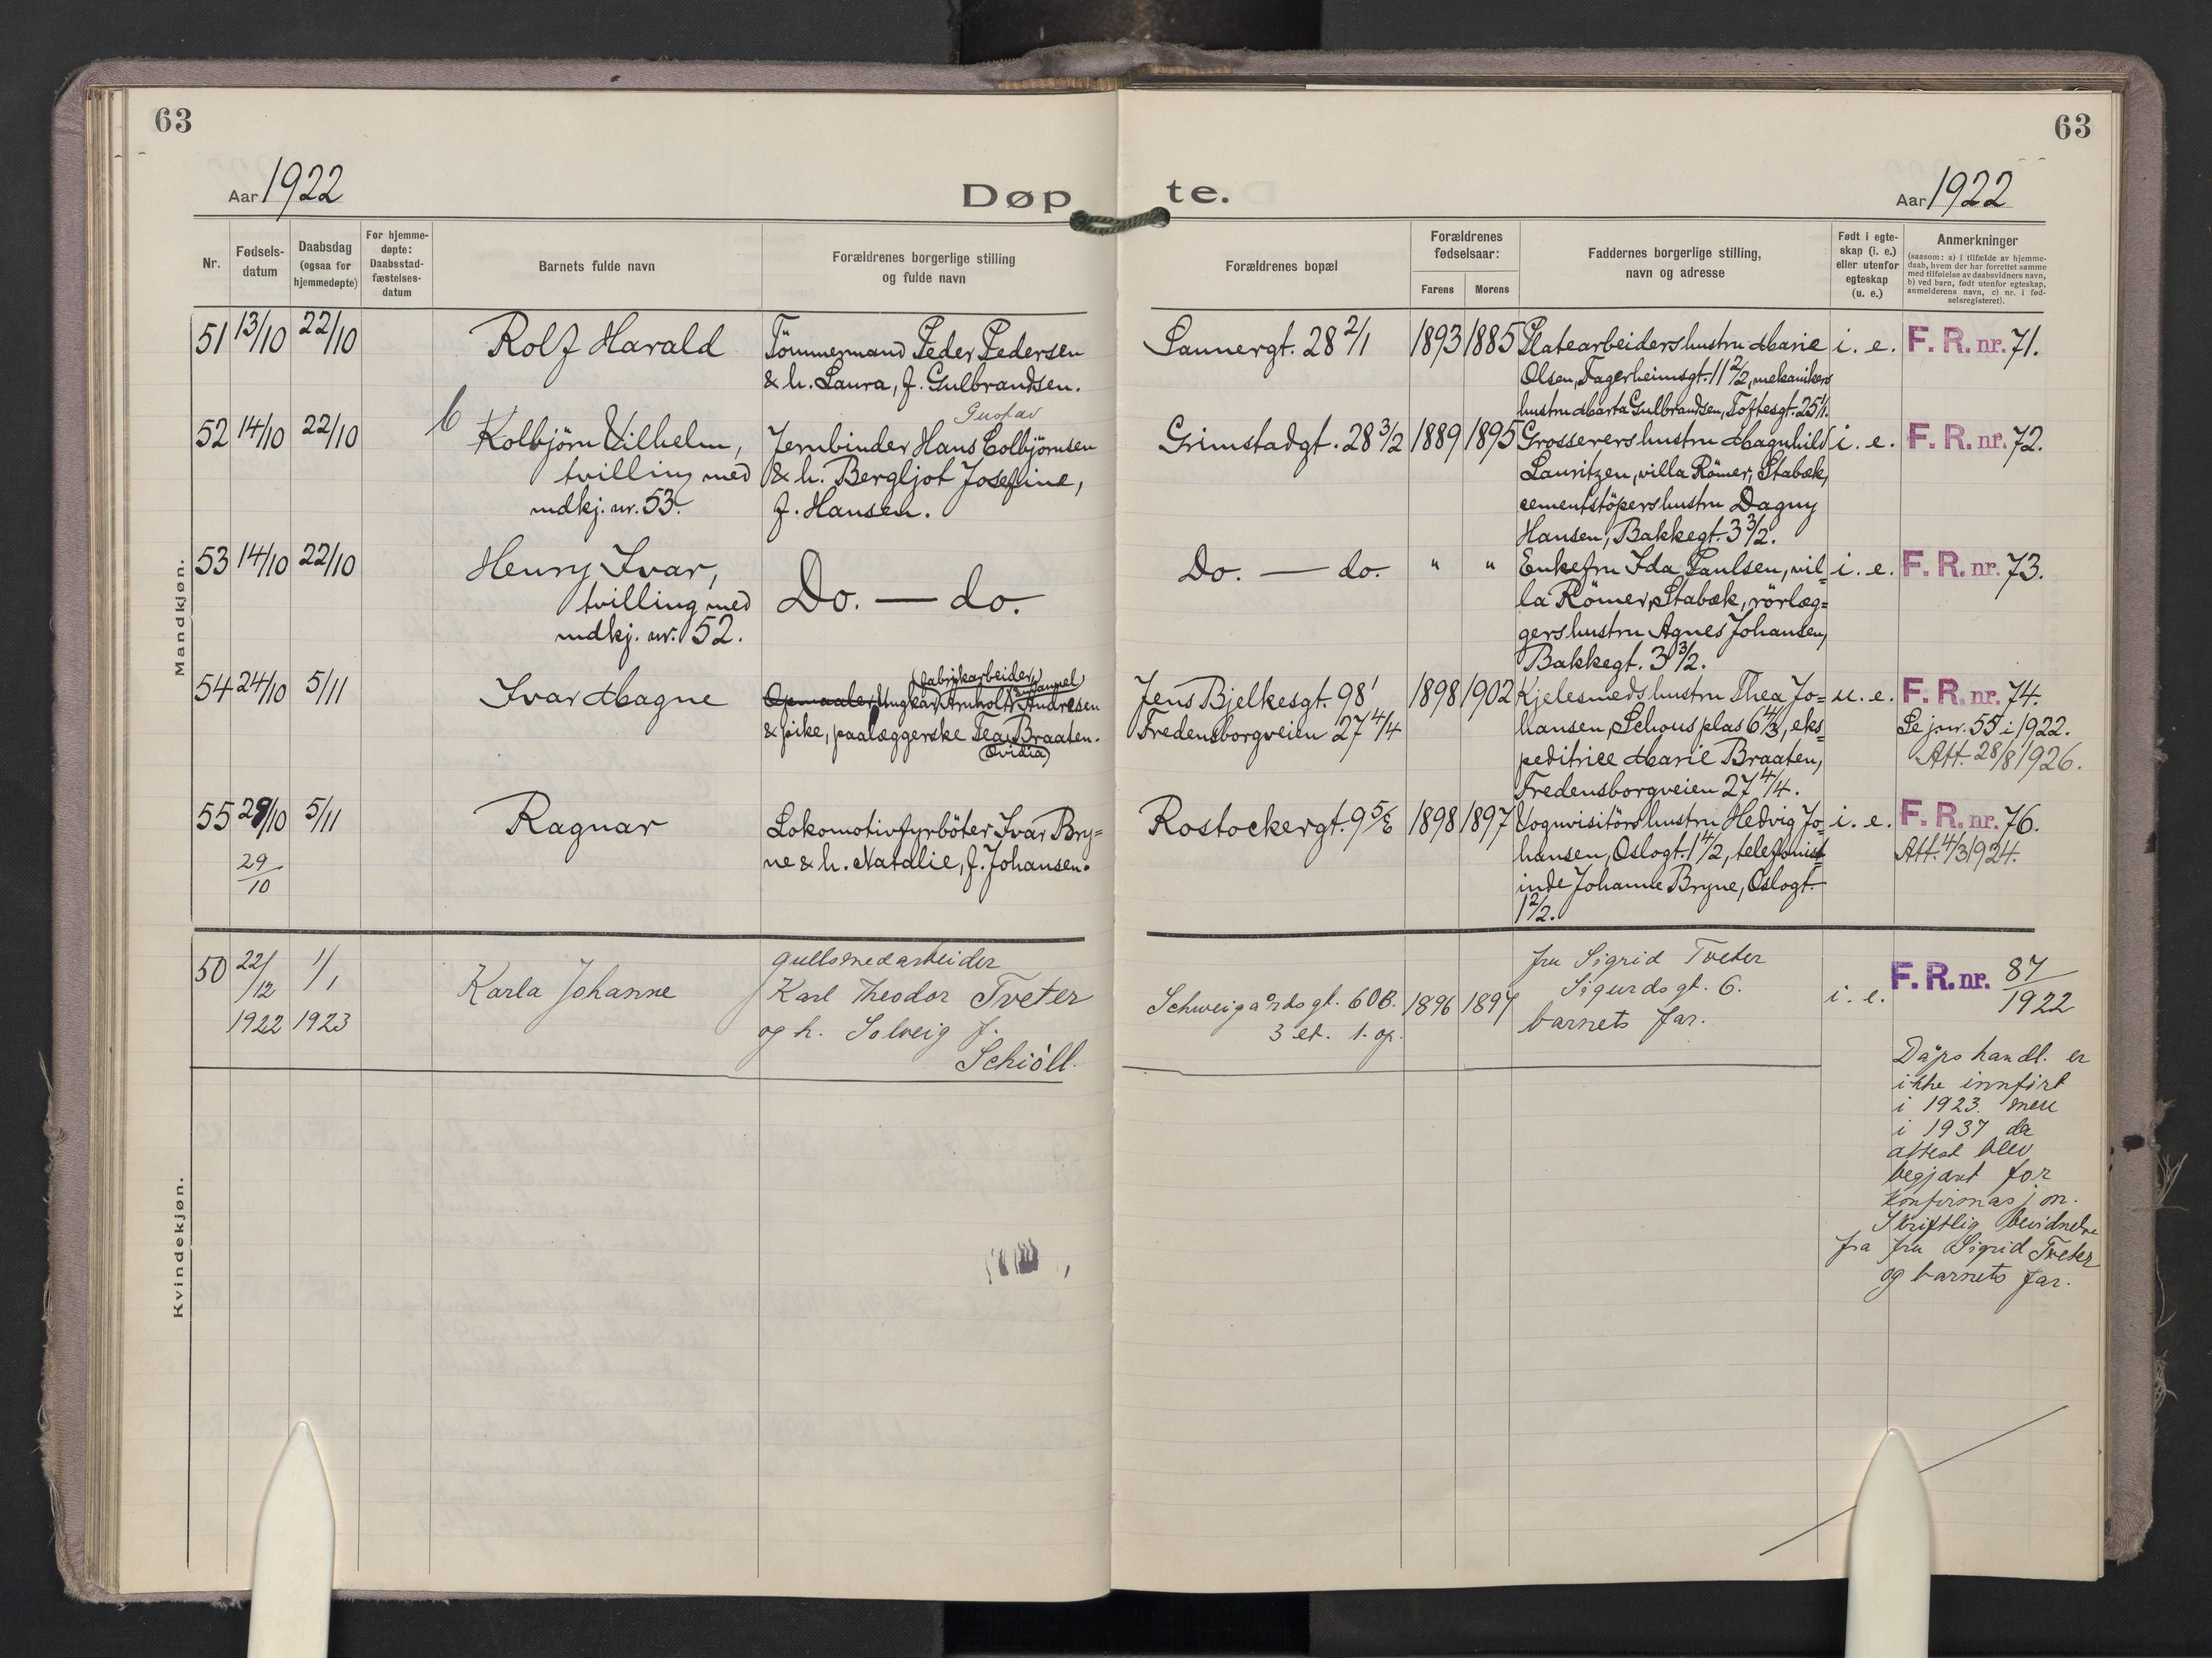 63
63
Aar 1922
Døp te.
Aar 1922
Nr.
Fødsels-
datum
Daabsdag
(ogsaa for
hjemmedøpte)
For hjemme-
døpte:
Daabsstad-
fæstelses-
datum
Barnets fulde navn
Forældrenes borgerlige stilling
og fulde navn
Forældrenes bopæl
Forældrenes
fødselsaar:
Farens
Morens
Faddernes borgerlige stilling,
navn og adresse
Født i egte-
skap (i. e.)
eller utenfor
egteskap
(u. e.)
Anmerkninger
(saasom: a) i tilfælde av hjemme-
daab, hvem der har forrettet samme
med tilføielse av daabsvidners navn,
b) ved barn, født utenfor egteskap,
anmelderens navn, c) nr. i fød-
selsregisteret).
Mandkjøn.
51 13/10 22/10
Rolf Harald
Tömmermand Peder Pedersen
& h. Laura, f. Gulbrandsen.
Sannergt. 28 2/1
1893 1885
Platearbeidershustru Marie
Olsen, Fagerheimsgt. 11 2/2, mekanikers
hustru Marta Gulbrandsen, Toftesgt. 25 1/1.
i. e.
F. R. nr. 71.
52 14/10 22/10
Kolbjörn Vilhelm,
tvilling med
mdkj. nr. 53.
Gustav
Jernbinder Hans Colbjörnsen
& h. Bergljot Josefine,
f. Hansen.
Grimstadgt. 28 3/2
1889 1895
Grosserershustru Magnhild
Lauritzen, villa Römer, Stabæk,
cementstöpershustru Dagny
Hansen, Bakkegt. 3 3/2.
i. e.
F. R. nr. 72.
53 14/10 22/10
Henry Ivar,
tvilling med
mdkj. nr. 52.
Do. — do.
Do. — do.
" "
Enkefru Ida Paulsen, vil=
la Römer, Stabæk, rörlæg=
gershustru Agnes Johansen,
Bakkegt. 3 3/2.
i. e.
F. R. nr. 73.
54 24/10 5/11
Ivar Magne
fabrikarbeider
Emanuel
Opmaaler Ungkar Arnholt Andresen
& pike, paalæggerske Tea Braaten.
Ovidia
Jens Bjelkesgt. 98 1
Fredensborgveien 27 4/4
1898 1902
Kjelesmedshustru Thea Jo=
hansen, Schous plas 6 4/3, eks=
peditrice Marie Braaten,
Fredensborgveien 27 4/4.
u. e.
F. R. nr. 74.
Se jnr. 55 i 1922.
Att. 28/8 1926.
55 29/10 5/11
29/10
Ragnar
Lokomotivfyrböter Ivar Bry=
ne & h. Natalie, f. Johansen.
Rostockergt. 9 5/E
1898 1897
Vognvisitörshustru Hedvig Jo=
hansen, Oslogt. 1 4/2, telefonist=
inde Johanne Bryne, Oslogt.
1 2/2.
i. e.
F. R. nr. 76.
Att. 4/3 1924.
Kvindekjøn.
50 22/12 1/1
1922 1923
Karla Johanne
gullsmedarbeider
Karl Theodor Tveter
og h. Solveig f.
Schiöll.
Schweigaardsgt. 60B.
3 et. 1. op.
1896 1897
fru Sigrid Tveter
Sigurds gt. 6.
barnets far.
i. e.
F. R. nr. 87/1922
Dåpshandl. er
ikke innfört
i 1923. men
i 1937 da
attest blev
begjært for
konfirmasjon.
Skriftlig bevidnelse
fra fru Sigrid Tveter
og barnets far.